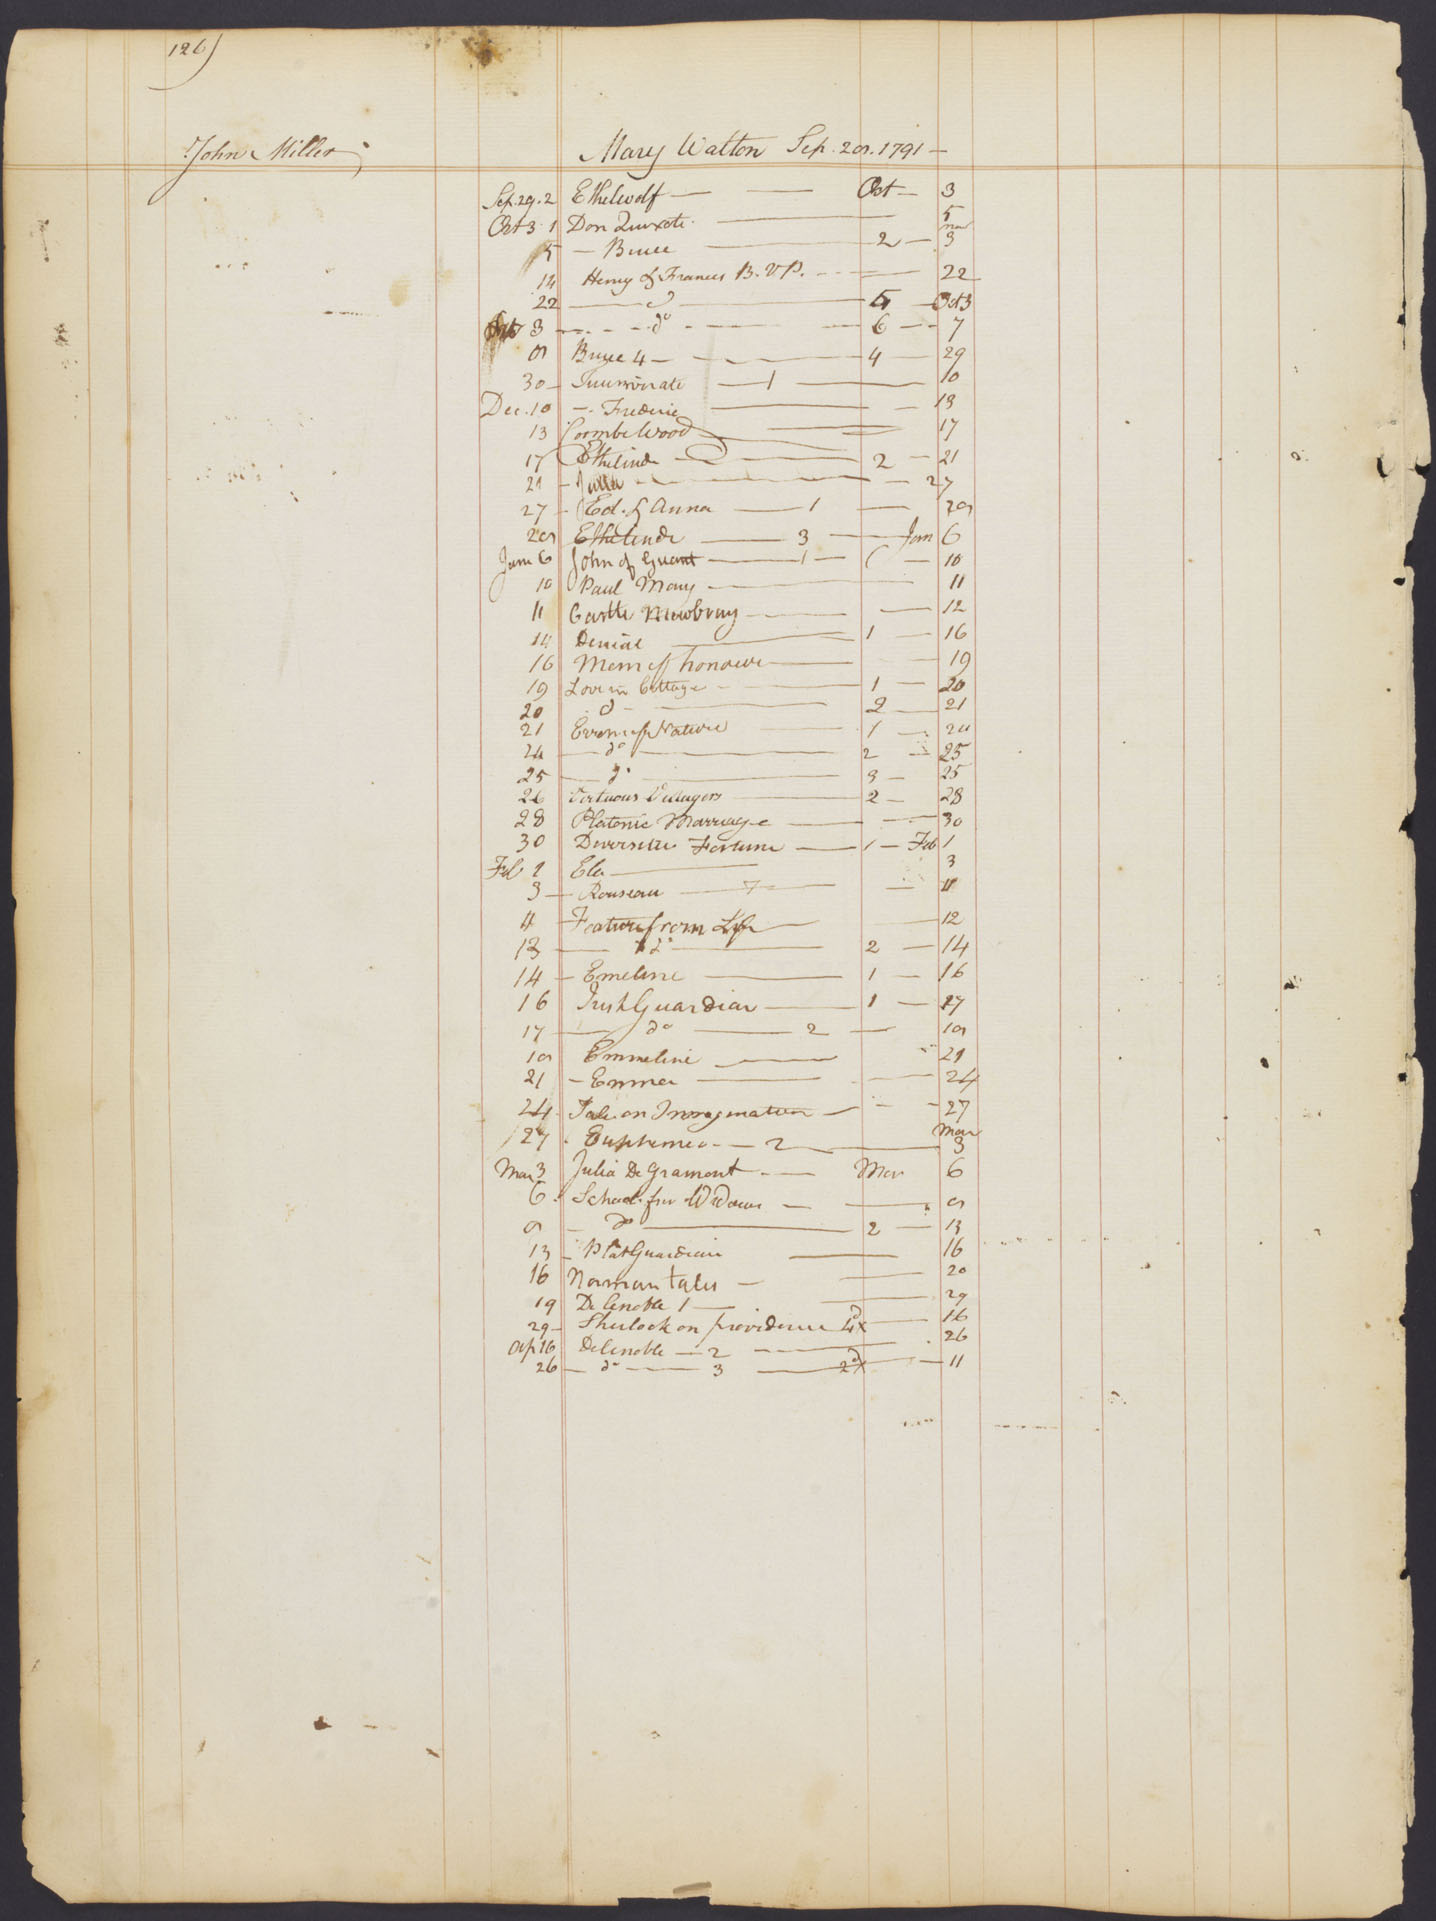 126)
John Miller
Mary Walton Sep. 28. 1791 —
Sep. 29. 2 Ethelwolf — — Oct — 3
Oct 3 1 Don Quixote — 5
5 — Bruce — 2 — Nov 3
14 Henry & Frances B. V P. — 22
22 — do — 5 — Oct 3
3 — do — 6 — 7
8 Bruce 4 — — 4 — 29
30 — 1 — 10
Dec. 10 — Frederic — 13
13 Coombe Wood — 17
17 Ethelinde — 2 — 21
21 — Julia — 27
27 — Ed. & Anna — 1 — 28
28 Ethelinde — 3 — Jan 6
Jan 6 John of Guant — 1 — 10
10 Paul Mary — 11
11 Castle Mowbray — 12
14 Denial — 1 — 16
16 Mem of honour — 19
19 Love in Cottage — 1 — 20
20 do — 2 — 21
21 Errors of Nature — 1 — 24
24 — do — 2 — 25
25 — do — 3 — 25
26 Virtuous Villagers — 2 — 28
28 Platonic Marriage — 30
30 Fortune — 1 — Feb 1
Feb 1 Ela — 3
3 — Rouseau — 11
4 — Feature from Life — 12
13 — do — 2 — 14
14 — Emeline — 1 — 16
16 Irish Guardian — 1 — 17
17 — do — 2 — 18
18 Emmeline — 21
21 — Emma — 24
24 Tale on Imagination — 27
27 Euphemia — 2 — Mar 3
Mar 3 Julia De Gramont — Mar 6
6 School for Widows — 8
8 — do — 2 — 13
13 — Guardian — 16
16 Norman tales — 20
19 Delenoble 1 — 29
29 — Sherlock on providence 4d x — 16
Ap 16 Delenoble — 2 — 26
26 — do — 3 — 2d x — 11